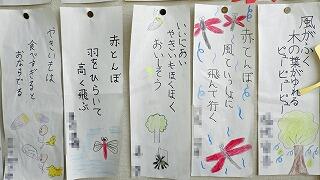 風がふく
木の葉がゆれる
ピーピーピュー
赤とんぼ
風といっしょに
飛んで行く
いいにおい
やきいもほくほく
おいしそう
赤とんぼ
羽をひらいて
高く飛ぶ
やきいもは
食べすぎると
おならでる